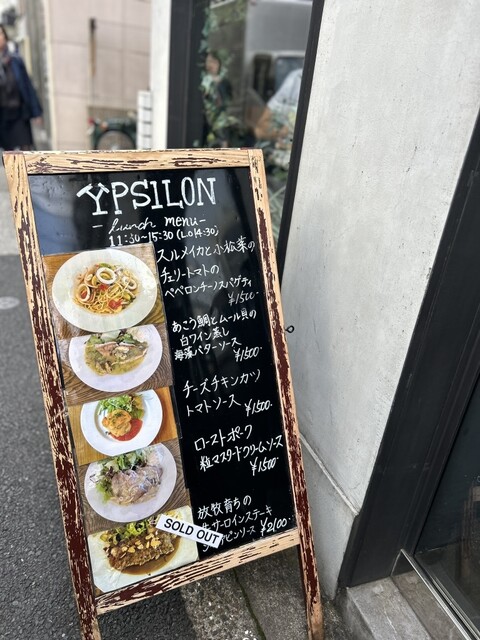 YPSILON
- Lunch menu -
11:30~15:30 (L.o14:30)
スルメイカと小松菜の
チェリートマトの
ペペロンチーノスパゲティ
¥1500-
あこう鯛とムール貝の
白ワイン蒸し
海藻バターソース
¥1500-
チーズチキンカツ
トマトソース ¥1500-
ローストポーク
粒マスタードクリームソース
¥1500-
放牧育ちの
サーロインステーキ
ソース ¥2100-
SOLD OUT